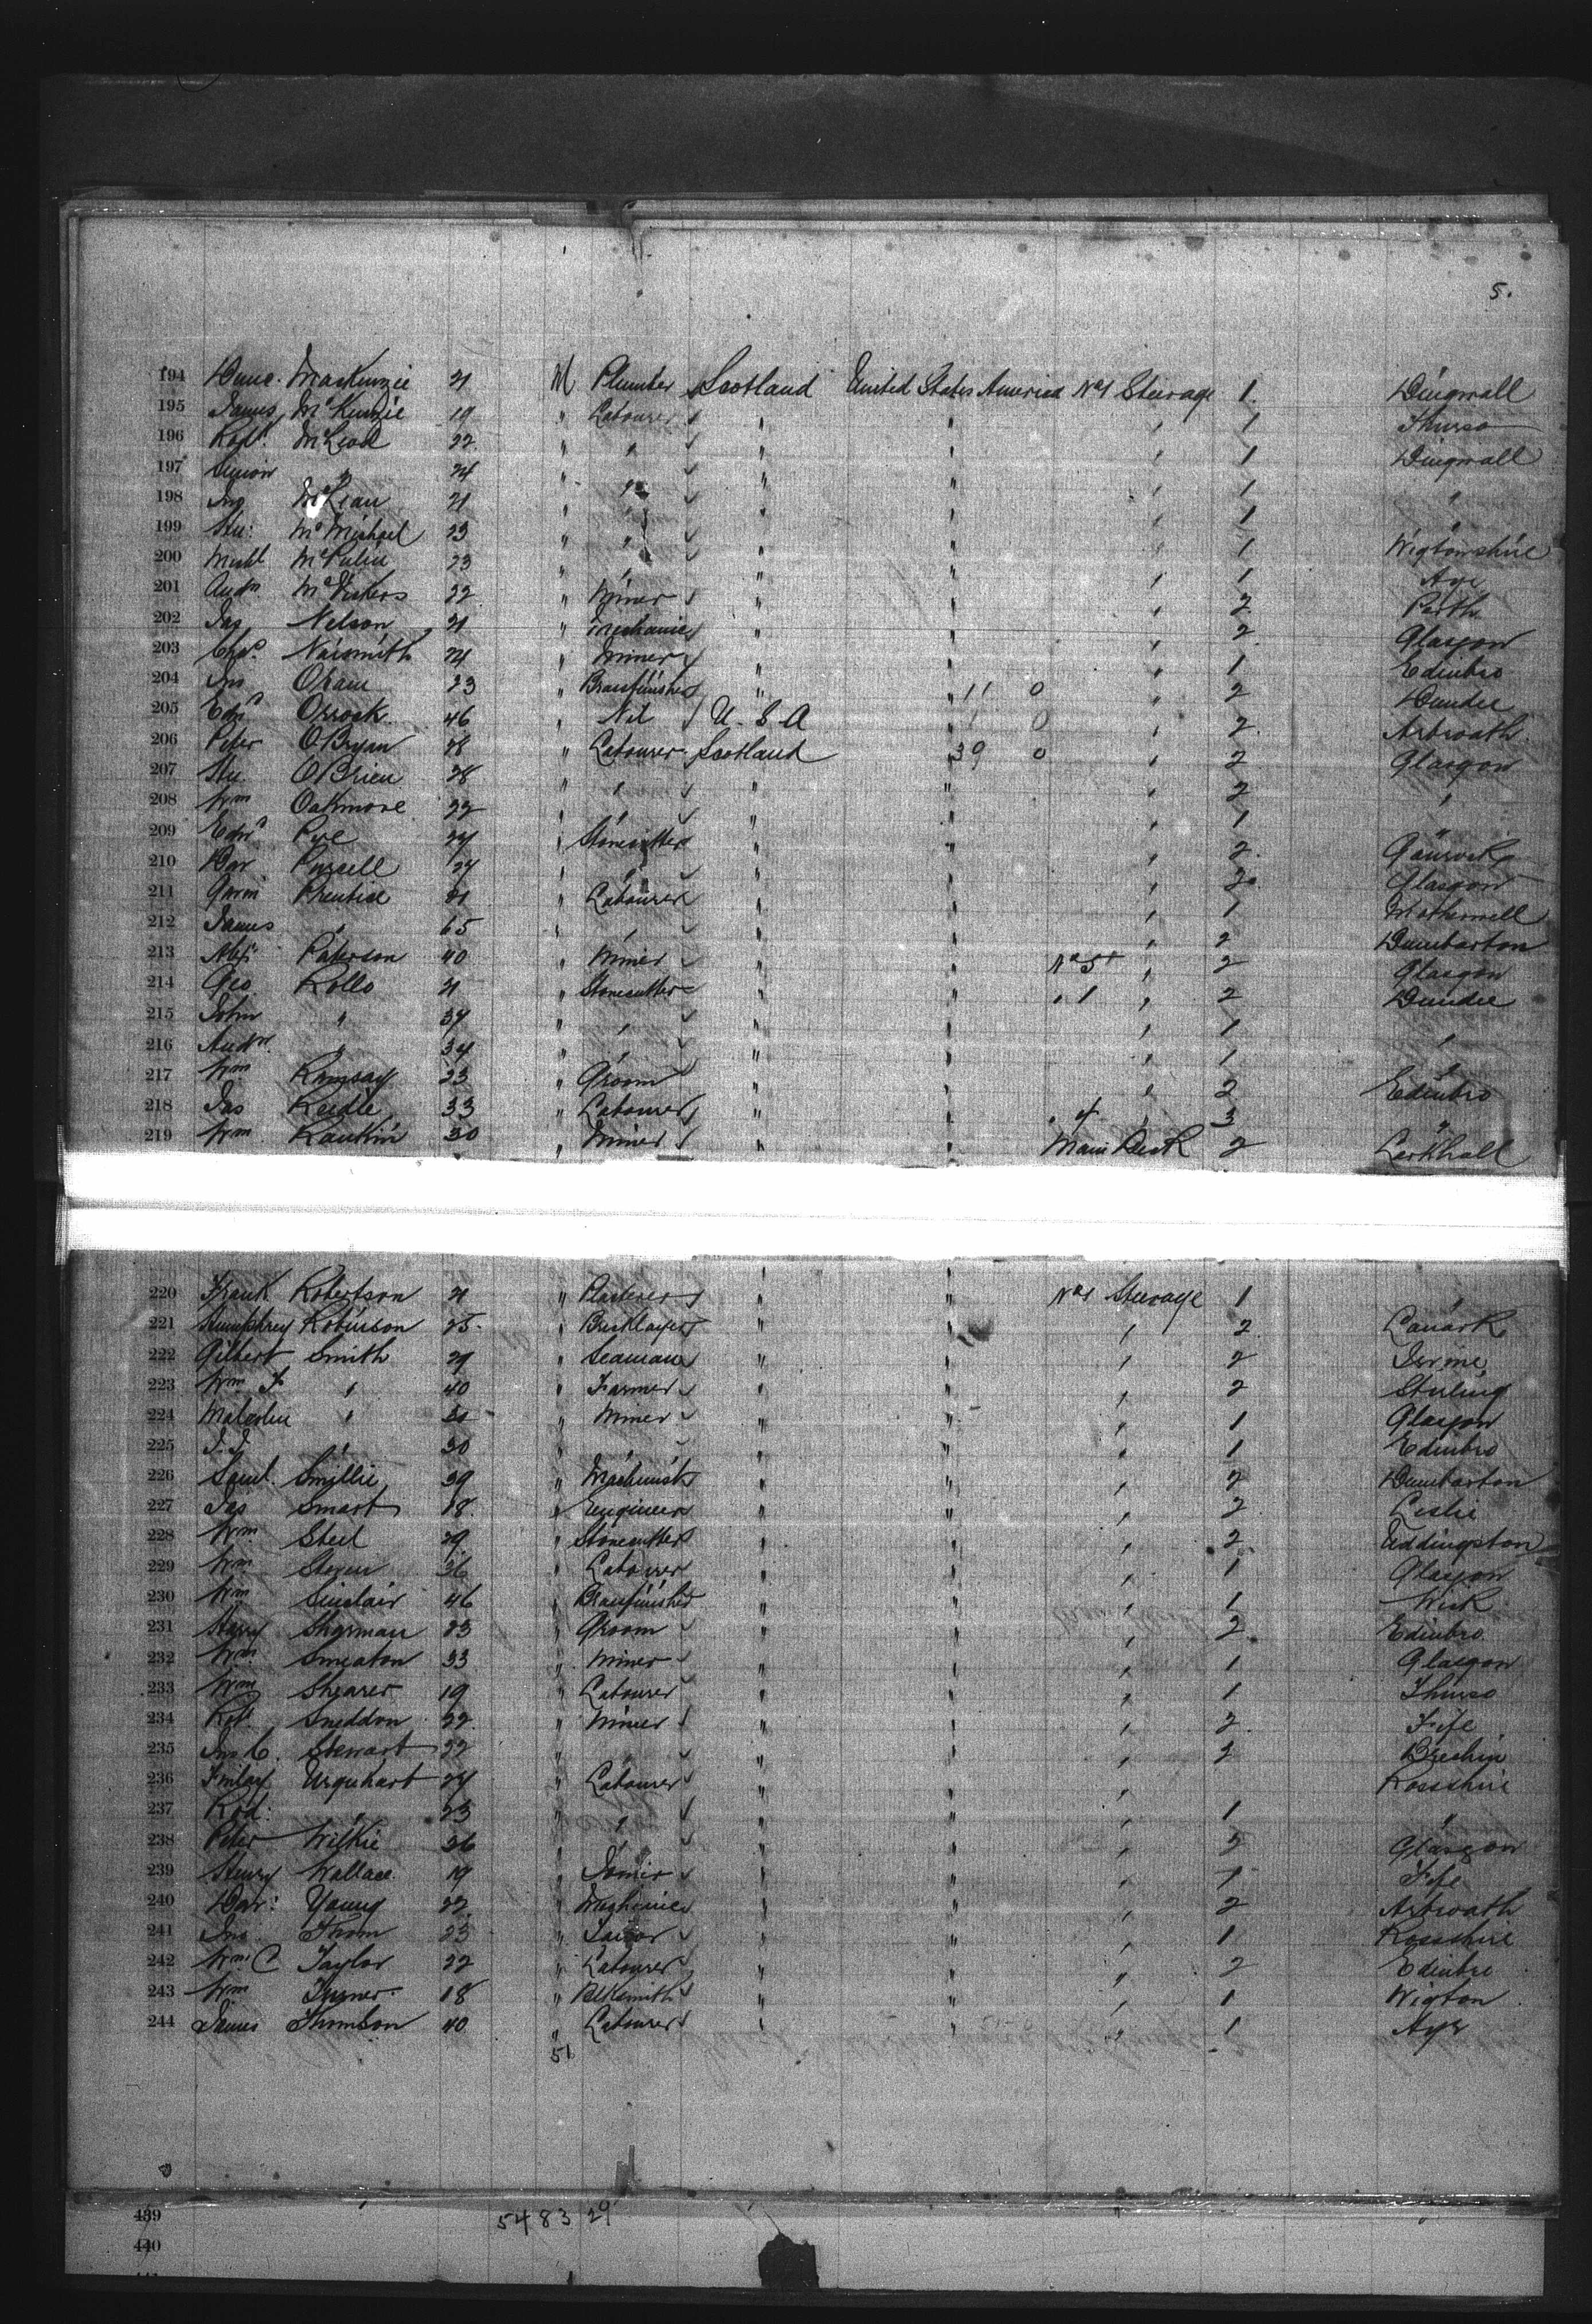 5.
194 Dunc. MacKenzie 21 M Plumber Scotland United States America No 1 Steerage 1 Dingwall
195 James McKenzie 19 " Labourer " " " 1 Thurso
196 Robt. McLeod 22 " " " " " 1 Dingwall
197 Simon " 24 " " " " " 1 "
198 Jno McLean 21 " " " " " 1 "
199 Hu: McMichael 23 " " " " " 1 Wigtownshire
200 Michl 23 " " " " " 1 Ayr
201 Andw. McVickers 22 " Miner " " " 2 Perth
202 Jas Nelson 21 " Mechanic " " " 2 Glasgow
203 Chas. Naismith 24 " Miner " " " 1 Edinbro
204 Jno Oram 23 " Brassfinisher " " 11 0 " 2 Dundee
205 Edwd Orrock 46 " Nil U.S.A 1 0 " 2 Arbroath
206 Peter OBryan 28 " Labourer Scotland 39 0 " 2 Glasgow
207 Hu. OBrien 28 " " " " " 2 "
208 Wm Oakmore 22 " " " " " 1 "
209 Edwd Pye 24 " Stonecutter " " " 2 Gourock
210 Dav Purcell 24 " " " " " 2 Glasgow
211 Gavin Prentice 21 " Labourer " " " 1 Motherwell
212 James " 65 " " " " " 2 Dumbarton
213 Alex Paterson 40 " Miner " " No 5 " 2 Glasgow
214 Geo Rollo 21 " Stonecutter " " " 1 " 2 Dundee
215 John " 34 " " " " " 1 "
216 Andw. " 34 " " " " " 1 "
217 Wm Ramsay 23 " Groom " " " 2 Edinbro
218 Jas Reedie 33 " Labourer " " " 4 " 3 "
219 Wm. Rankin 30 " Miner " " Main Deck 2 Larkhall
220 Frank Robertson 21 " Plasterer " " No 1 Steerage 1 "
221 Humphrey Robinson 25 " Bricklayer " " " 2 Lanark
222 Gilbert Smith 29 " Seaman " " " 2 Irvine
223 Wm F " 40 " Farmer " " " 2 Stirling
224 Malcolm " 30 " Miner " " " 1 Glasgow
225 J.J. " 30 " " " " " 1 Edinbro
226 Saml. Smillie 39 " Machinist " " " 2 Dumbarton
227 Jas Smart 18 " Engineer " " " 2 Leslie
228 Wm. Steel 29 " Stonecutter " " " 2 Uddingston
229 Wm. Steven 36 " Labourer " " " 1 Glasgow
230 Wm Sinclair 46 " Brassfinisher " " " 1 Wick
231 Harry Sharman 23 " Groom " " " 2 Edinbro
232 Wm. Smeaton 33 " Miner " " " 1 Glasgow
233 Wm Shearer 19 " Labourer " " " 1 Thurso
234 Robt. Sneddon 22 " Miner " " " 2 Fife
235 Jno C. Stewart 22 " " " " " 2 Brechin
236 Finlay Urquhart 24 " Labourer " " " Rossshire
237 Rod: " 23 " " " " " 1 "
238 Peter Wilkie 26 " " " " " 2 Glasgow
239 Henry Wallace 19 " " " " 1 Fife
240 Dav: Young 22 " Mechanic " " " 2 Arbroath
241 Jno Thom 23 " Tailor " " " 1 Rossshire
242 Wm C Taylor 22 " Labourer " " " 2 Edinbro
243 Wm Turner 18 " Blksmith " " " 1 Wigton
244 James Thomson 40 " Labourer " " " 1 Ayr
51
439 5483 29
440